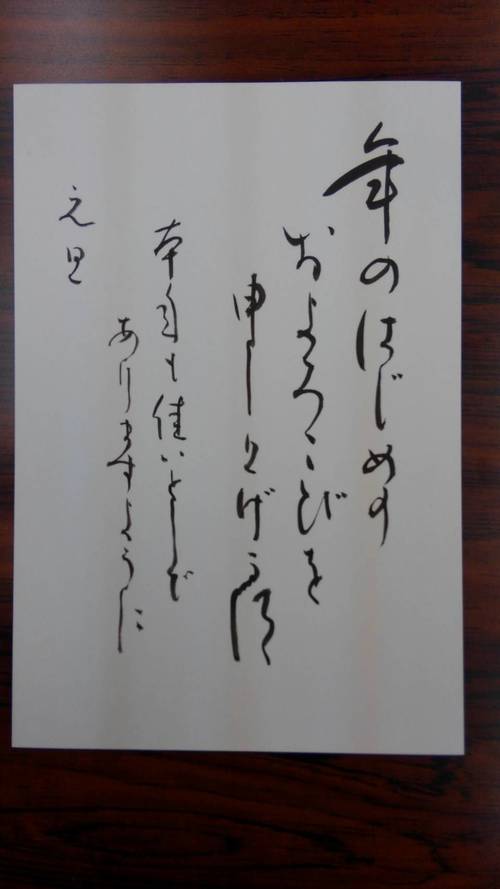 年のはじめの
およろこびを
申し上げます
本年も佳いとしで
ありますように
元旦